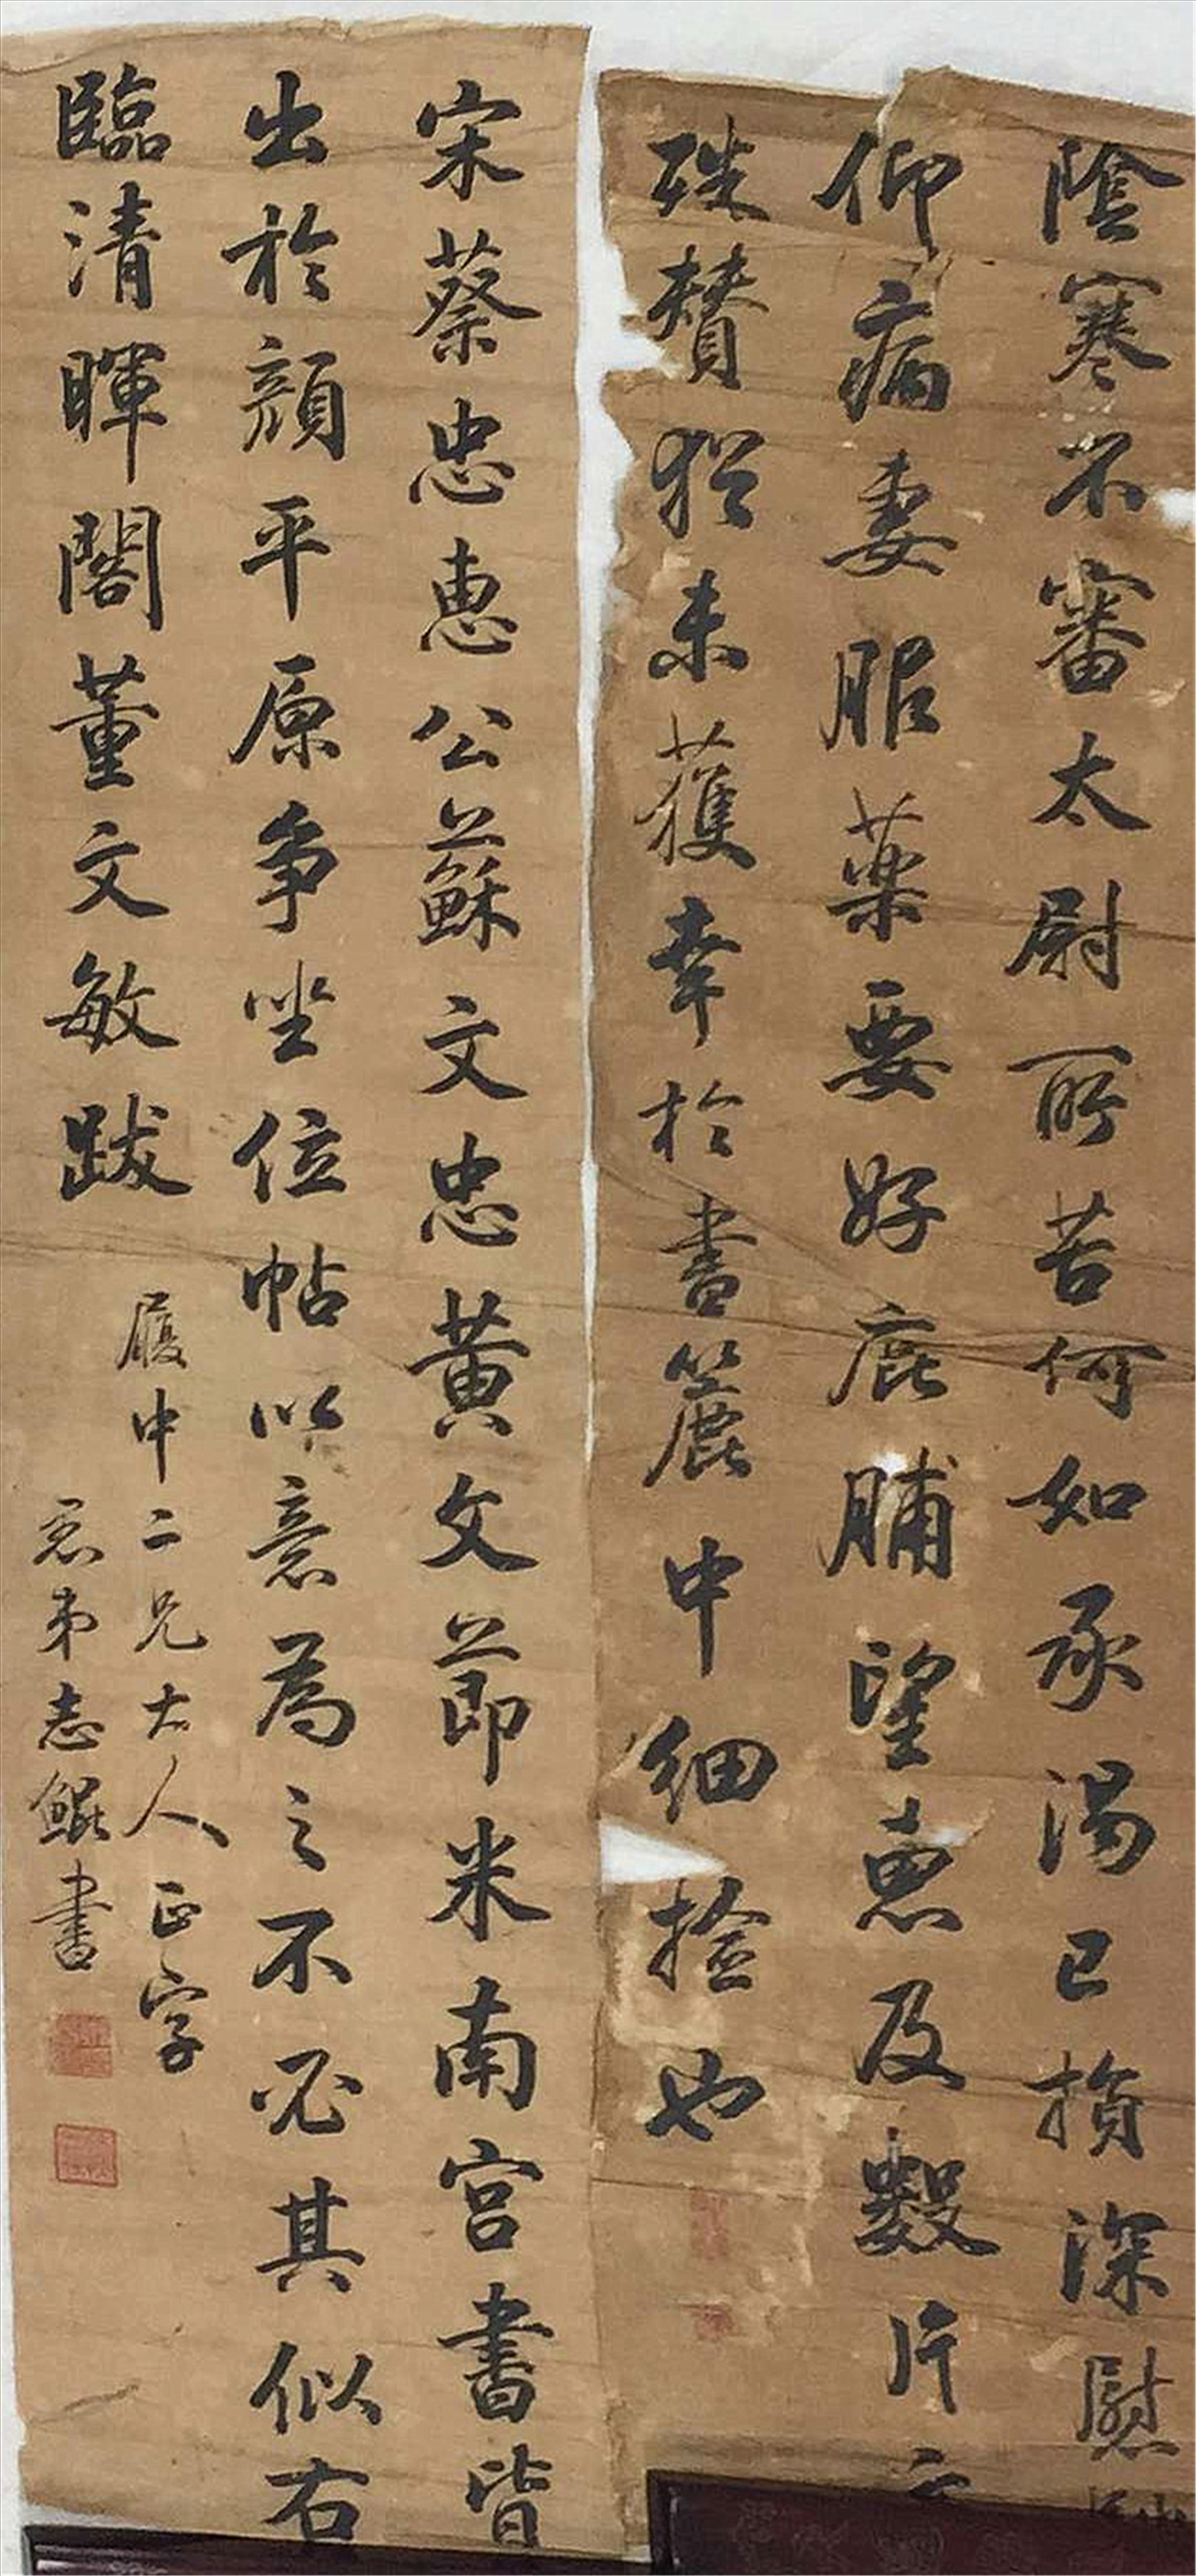 陰寒不審太尉所苦何如承渴已損深慰
仰病妻服藥要好鹿脯望惠及數片
殊賛猶未獲幸於書簏中細捡也
宋蔡忠惠公蘇文忠黃文節米南宮書皆
出於顏平原爭坐位帖以意為之不必其似右
臨清暉閣董文敏跋
履中二兄大人正字
愚弟志鯤書